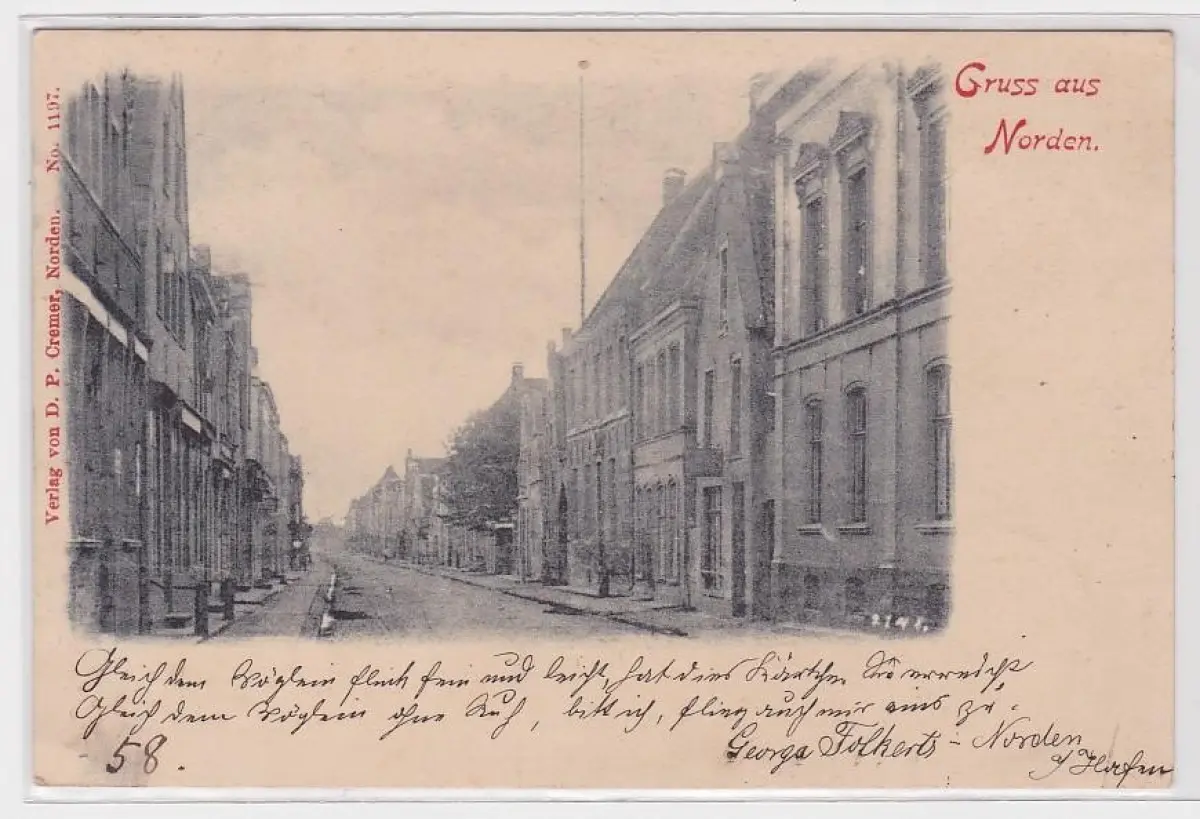 Gruss aus
Norden.
Verlag von D. P. Cremer, Norden. No. 1197.
2141.
Gleich dem Vöglein flink fein und leicht, hat dies Kärtchen Sie erreicht
Gleich dem Vöglein ohne Ruh, bitt ich, flieg auch mir eins zu.
Georga Folkerts - Norden
58.
Hafen